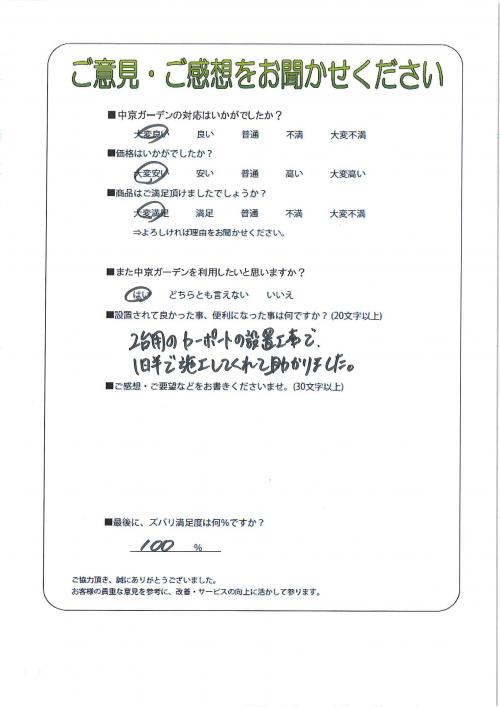 ご意見・ご感想をお聞かせください
■中京ガーデンの対応はいかがでしたか？
大変良い 良い 普通 不満 大変不満
■価格はいかがでしたか？
大変安い 安い 普通 高い 大変高い
■商品はご満足頂けましたでしょうか？
大変満足 満足 普通 不満 大変不満
⇒よろしければ理由をお聞かせください。
■また中京ガーデンを利用したいと思いますか？
はい どちらとも言えない いいえ
■設置されて良かった事、便利になった事は何ですか？(20文字以上)
2台用のカーポートの設置工事で、
1日半で施工してくれて助かりました。
■ご感想・ご要望などをお書きくださいませ。(30文字以上)
■最後に、ズバリ満足度は何％ですか？
100 ％
ご協力頂き、誠にありがとうございました。
お客様の貴重な意見を参考に、改善・サービスの向上に活かして参ります。